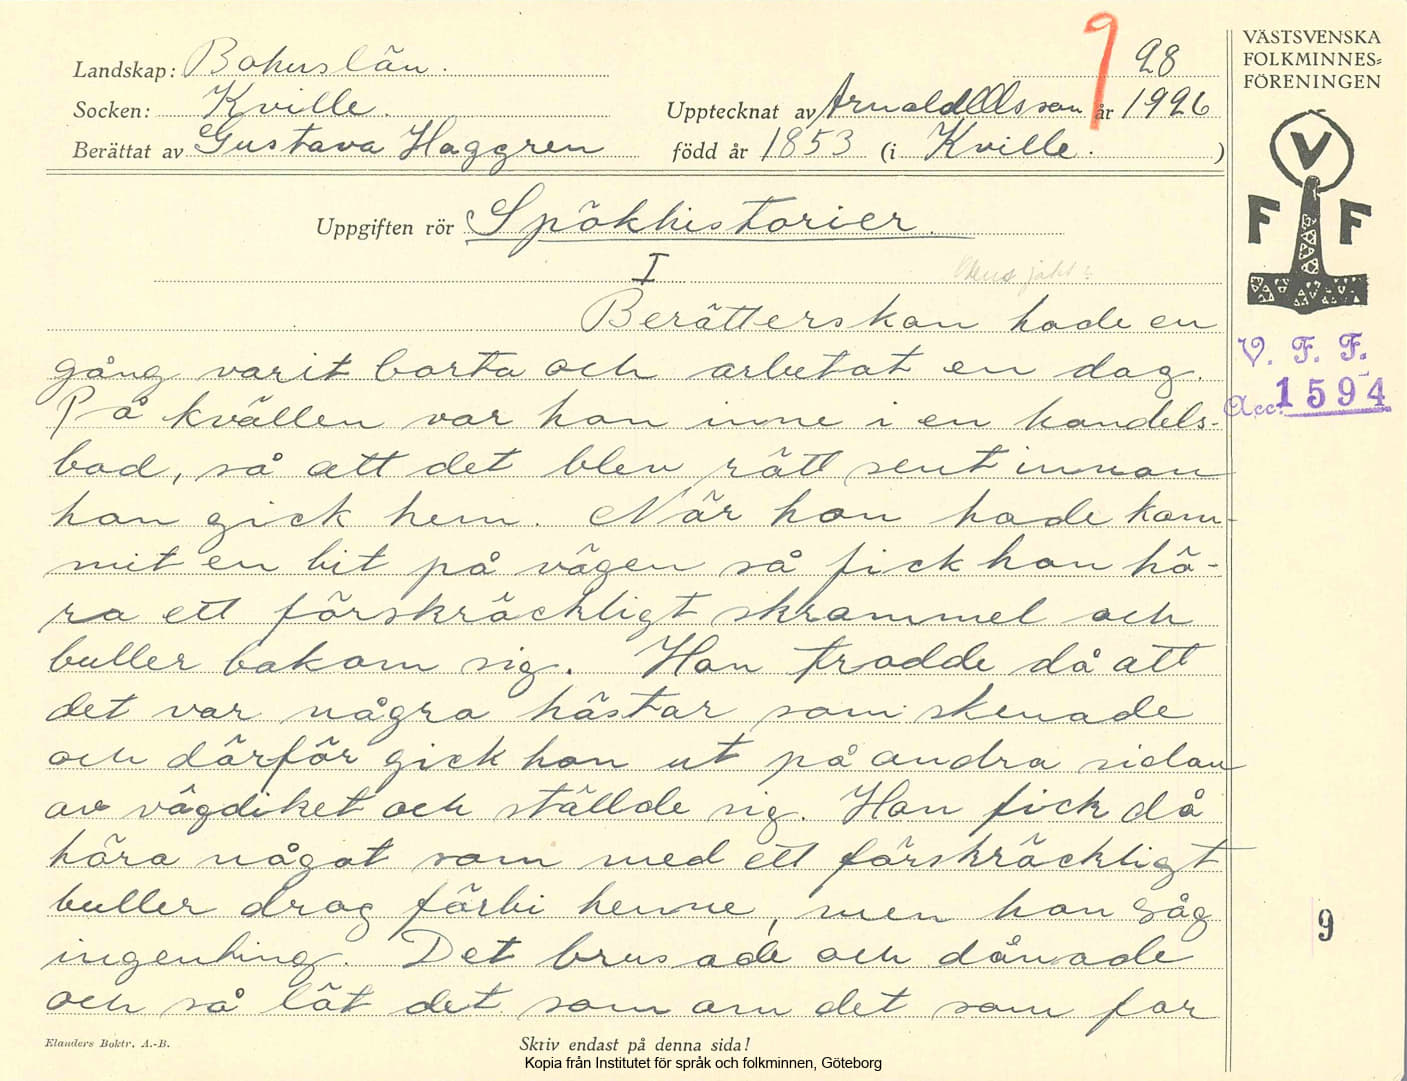 VÄSTSVENSKA
FOLKMINNES=
FÖRENINGEN
9 28
Landskap: Bohuslän.
Socken: Kville. Upptecknat av Arnold Olsson år 1926
Berättat av Gustava Haggren född år 1853 (i Kville.)
V
F F
Uppgiften rör Spökhistorier.
I
Berätterskan hade en
gång varit borta och arbetat en dag.
På kvällen var hon inne i en handels-
bod, så att det blev rätt sent innan
hon gick hem. När hon hade kom-
mit en bit på vägen så fick hon hö-
ra ett förskräckligt skrammel och
buller bakom sig. Hon trodde då att
det var några hästar som skenade
och därför gick hon ut på andra sidan
av vägdiket och ställde sig. Hon fick då
höra något som med ett förskräckligt
buller drog förbi henne, men hon såg
ingenting. Det brusade och dånade
och så lät det som om det som for
V. F. F.
Acc. 1594
9
Elanders Boktr. A.-B.
Skriv endast på denna sida!
Kopia från Institutet för språk och folkminnen, Göteborg